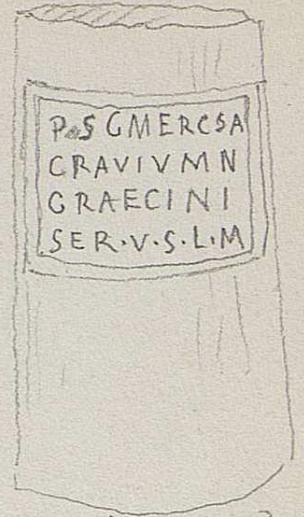 P.S GMERCSA
CRAVIVMN
GRAECINI
SER·V·S·L·M